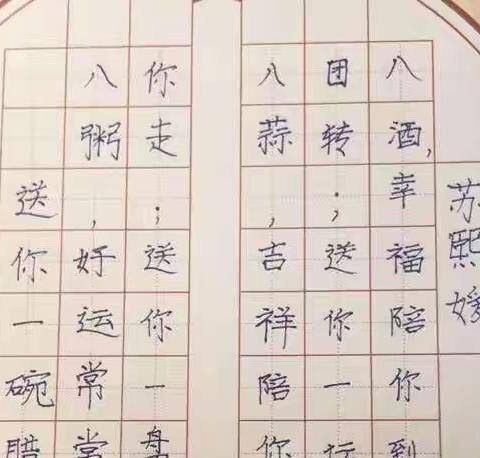 送你一碗腊
八粥,好运常常
你走;送你一盘
八蒜,吉祥陪你
团转;送你一坛
八酒,幸福陪你到
苏熙媛